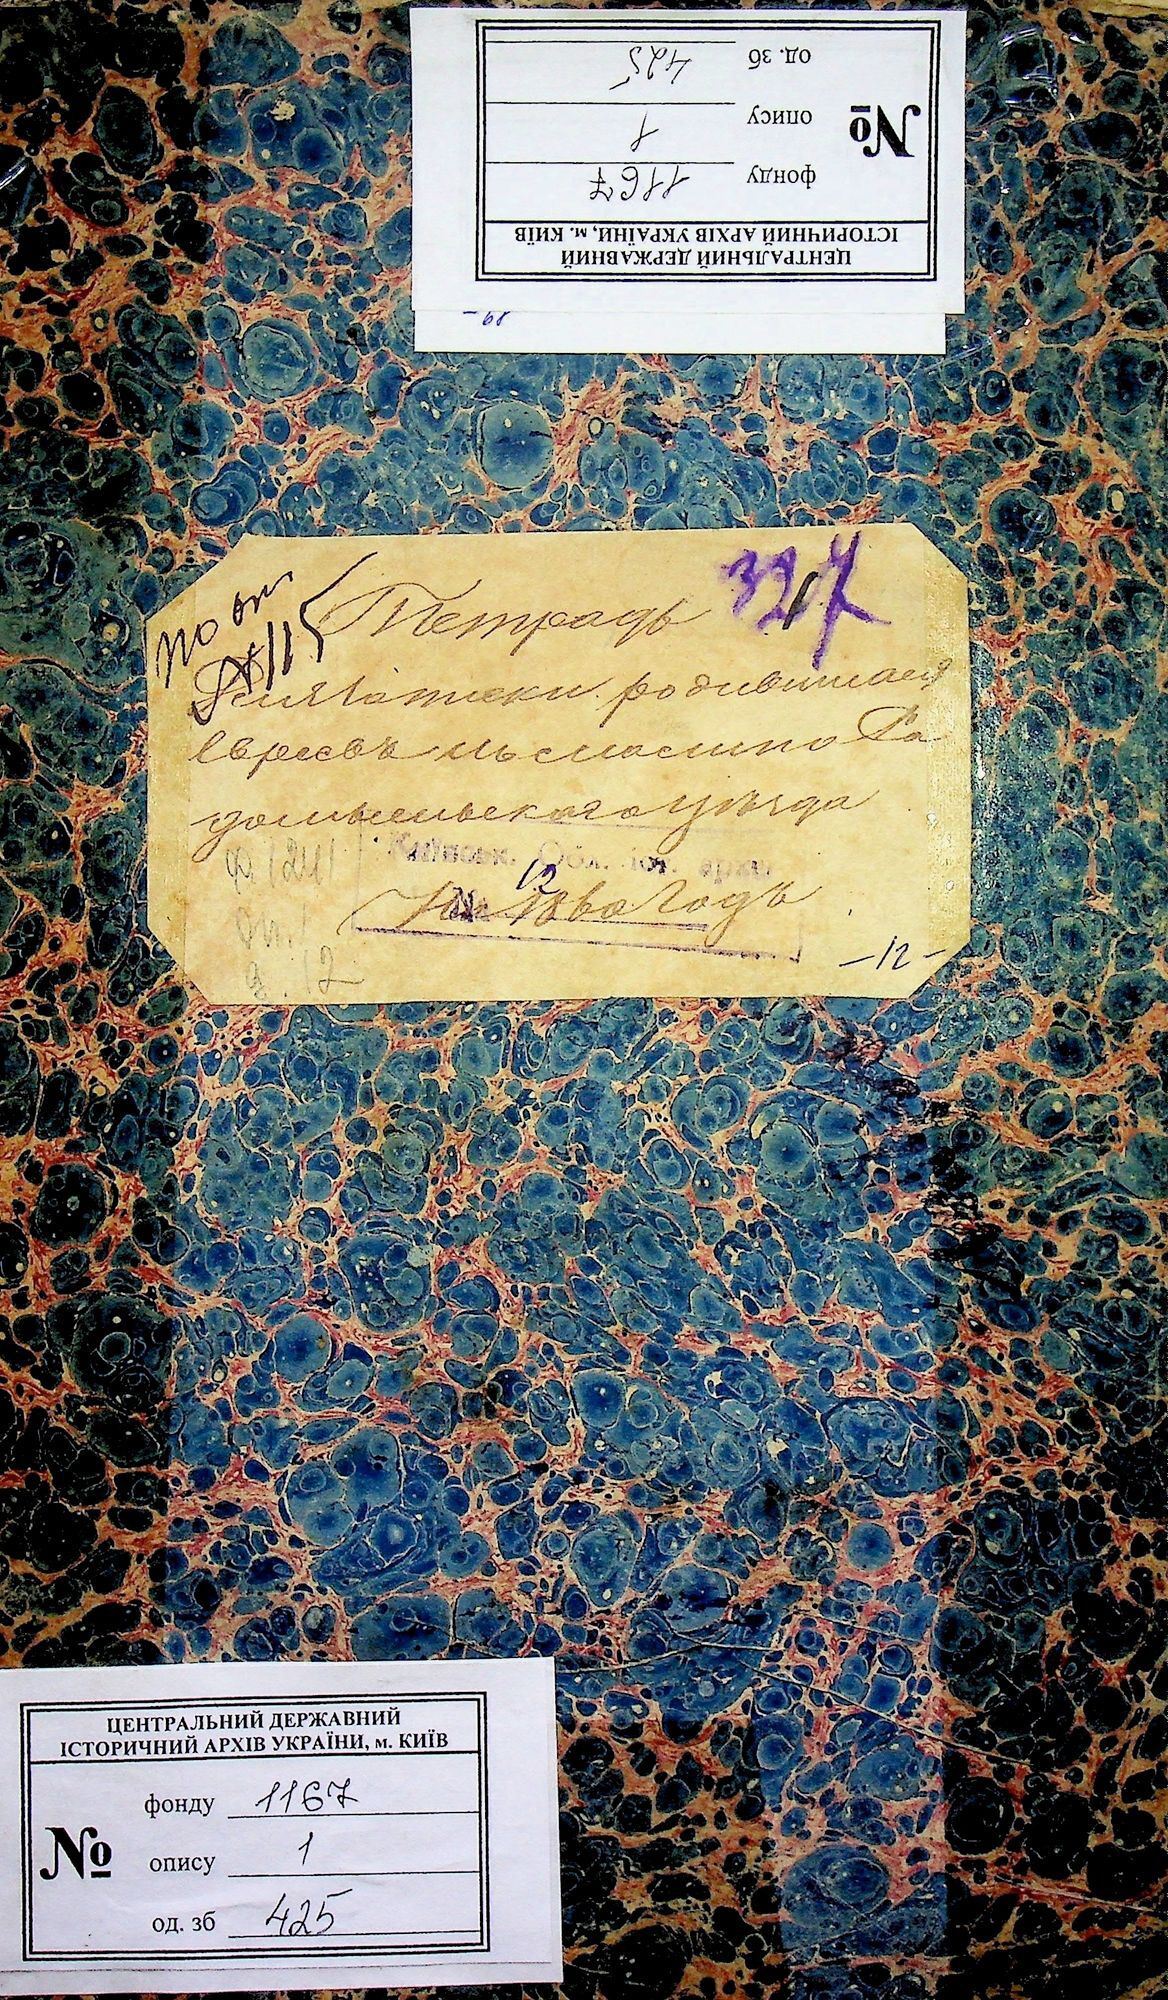 ЦЕНТРАЛЬНИЙ ДЕРЖАВНИЙ
ІСТОРИЧНИЙ АРХІВ УКРАЇНИ, м. КИЇВ
№
фонду 1167
опису 1
од. зб 425
327
по оп
№115
Тетрадь
родившихся
евреевъ местечко Ра
домысльского уѣзда
Київськ. Обл. іст. архів
№ 12
Годъ
ф. 1241
оп. 1
д. 12
-12-
ЦЕНТРАЛЬНИЙ ДЕРЖАВНИЙ
ІСТОРИЧНИЙ АРХІВ УКРАЇНИ, м. КИЇВ
№
фонду 1167
опису 1
од. зб 425